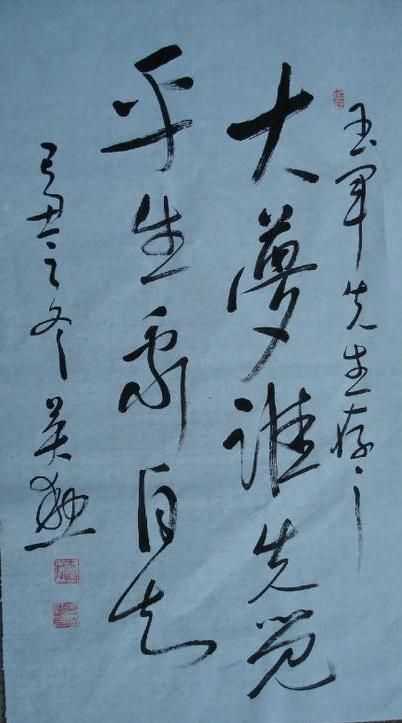 玉军先生存之
大梦谁先觉
平生我自知
己丑之冬英勋